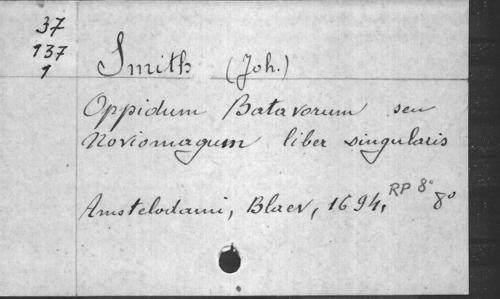 37
137
1
Smith (Joh.)
Oppidum Batavorum seu
Noviomagum liber singularis
Amstelodami, Blaev, 1694, RP 8° 8°